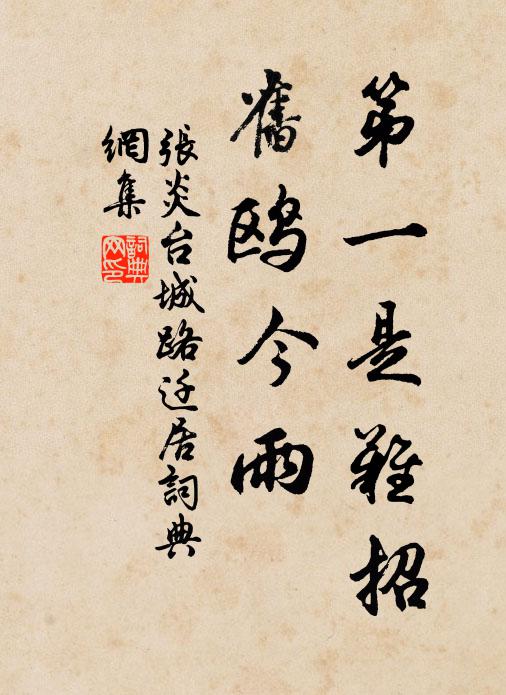 第一是难招
舊鸥今雨
張炎台城路迁居詞典
網集
詞典
网印